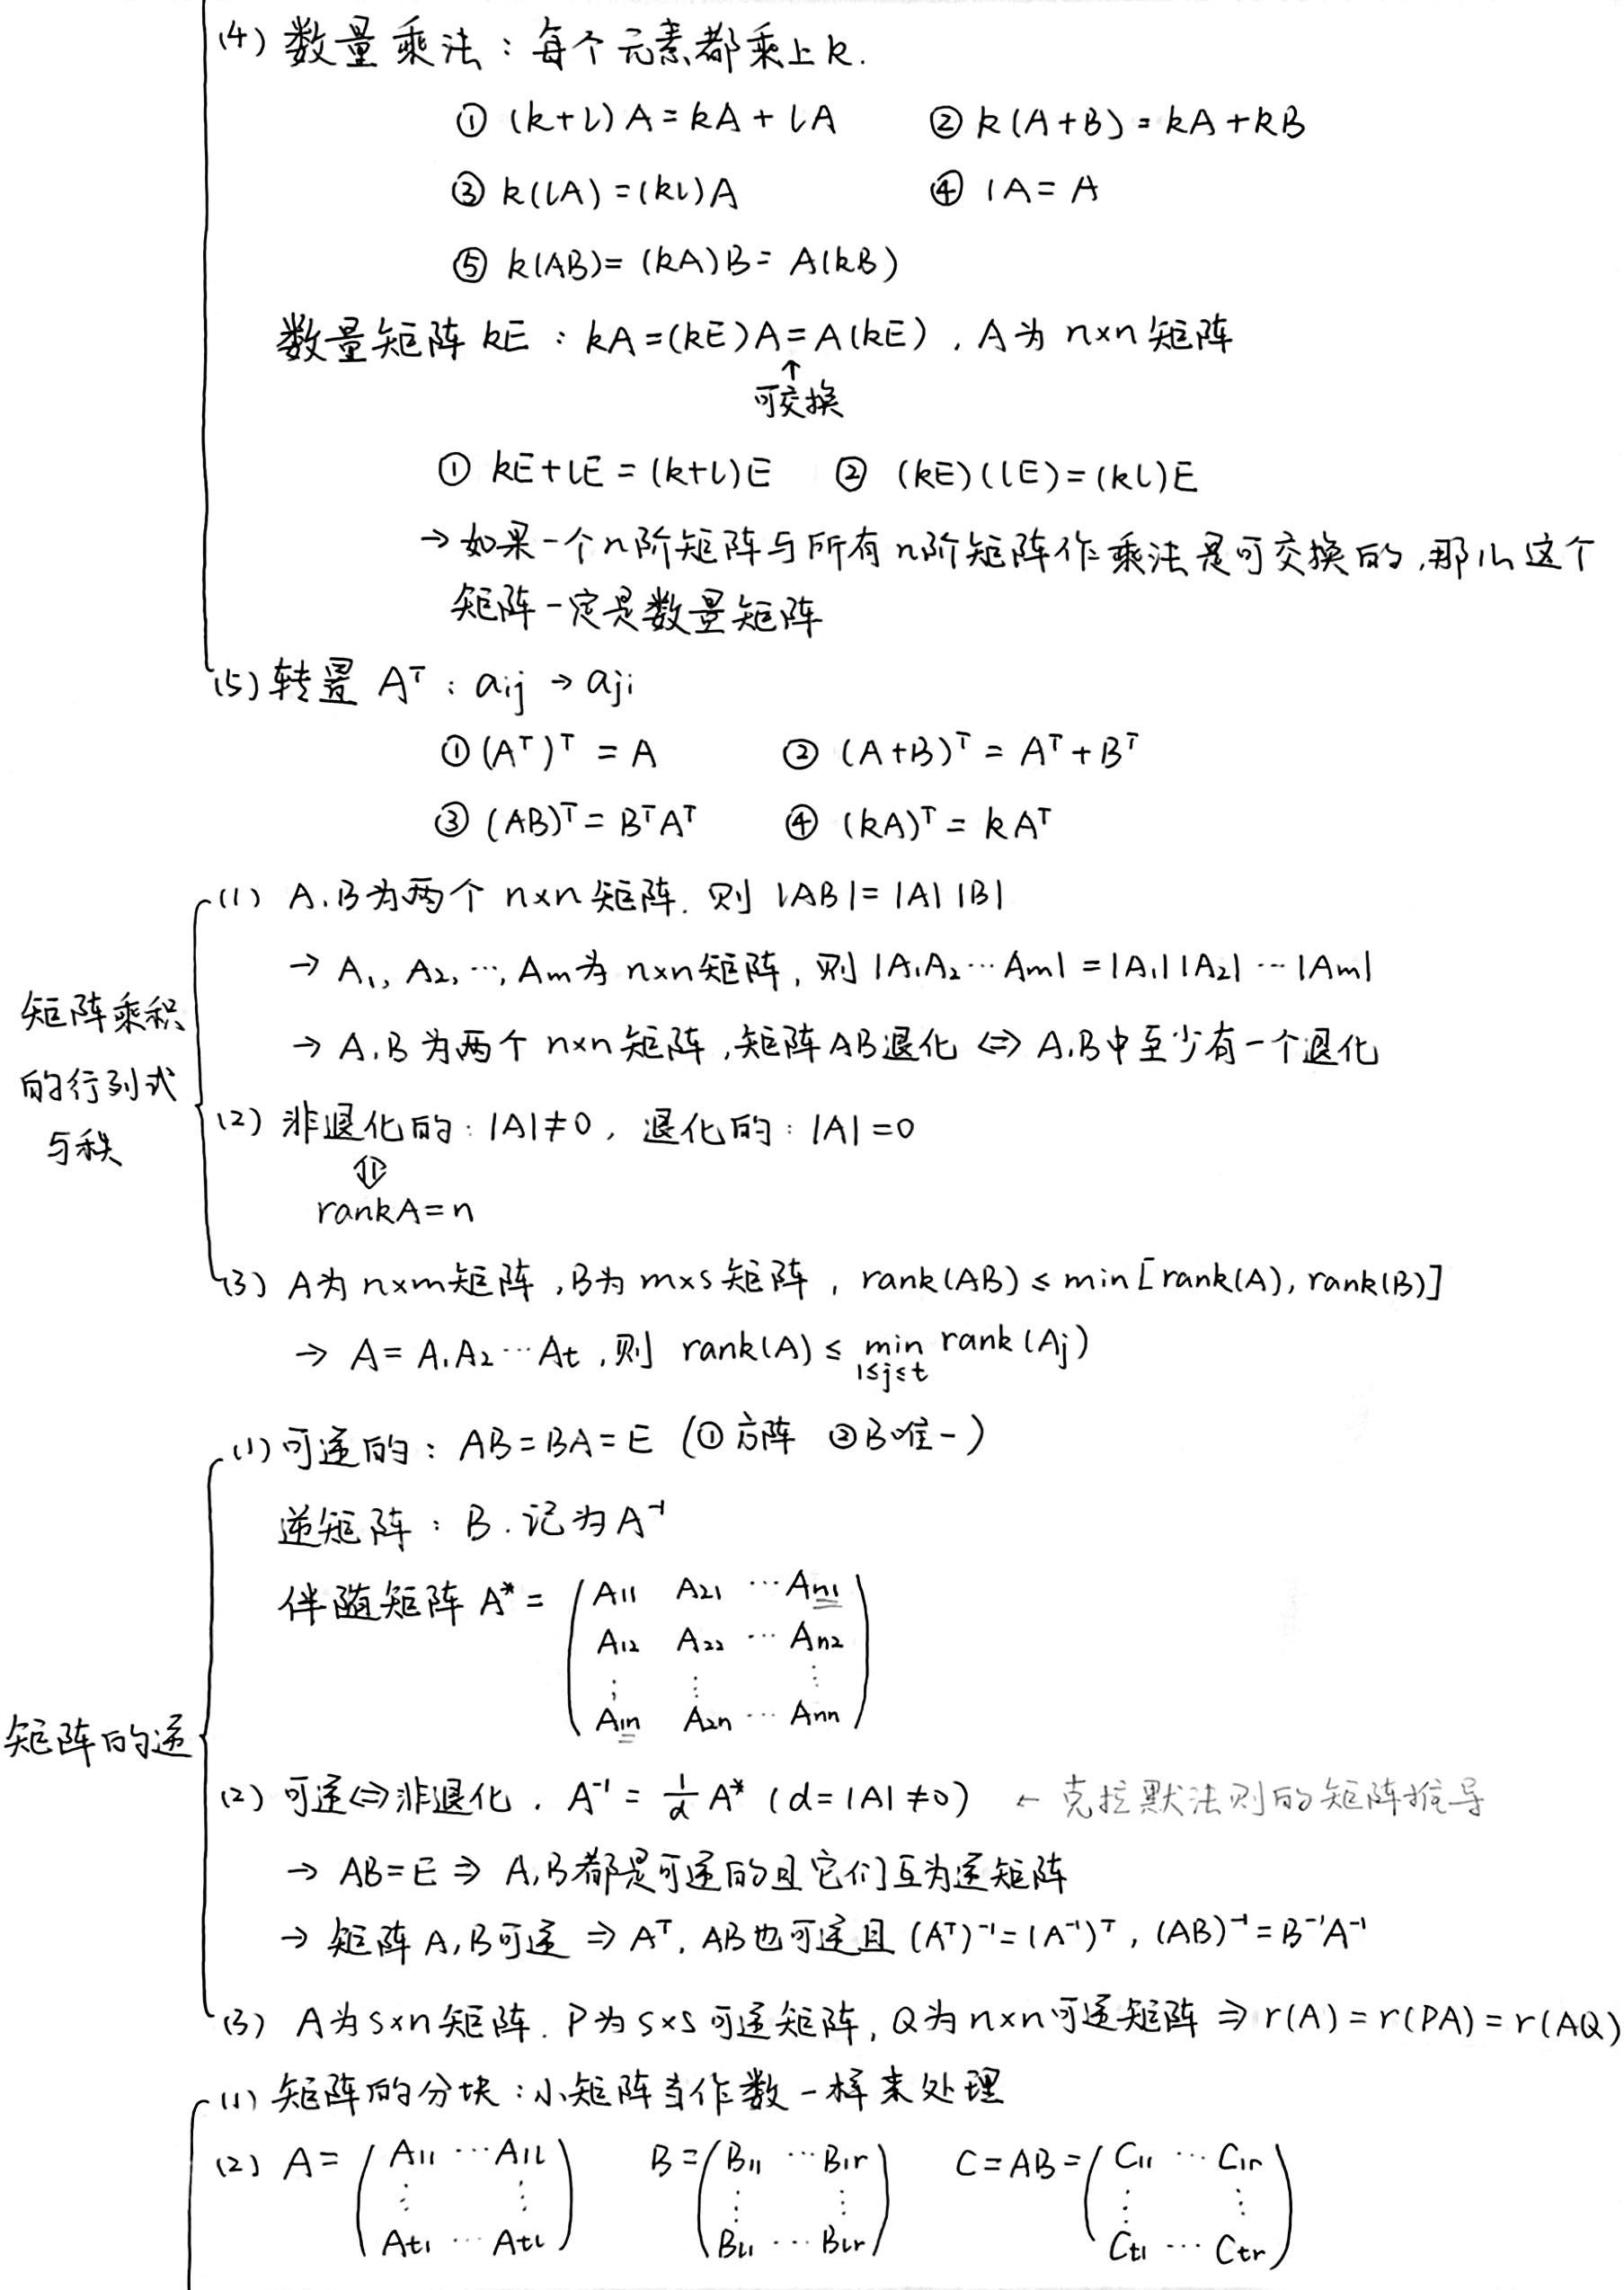 (4) 数量乘法：每个元素都乘上k.
① (k+l)A=kA+lA ② k(A+B)=kA+kB
③ k(lA)=(kl)A ④ 1A=A
⑤ k(AB)=(kA)B=A(kB)
数量矩阵 kE：kA=(kE)A=A(kE)，A为 n×n 矩阵
↑
可交换
① kE+lE=(k+l)E ② (kE)(lE)=(kl)E
→ 如果一个n阶矩阵与所有n阶矩阵作乘法是可交换的,那么这个
矩阵一定是数量矩阵
(5) 转置 Aᵀ：aij → aji
① (Aᵀ)ᵀ=A ② (A+B)ᵀ=Aᵀ+Bᵀ
③ (AB)ᵀ=BᵀAᵀ ④ (kA)ᵀ=kAᵀ
矩阵乘积
的行列式
与秩
(1) A,B为两个 n×n 矩阵. 则 |AB|=|A||B|
→ A₁, A₂, ⋯, Am为 n×n矩阵, 则 |A₁A₂⋯Am|=|A₁||A₂|⋯|Am|
→ A,B为两个 n×n 矩阵,矩阵AB退化 ⇔ A,B中至少有一个退化
(2) 非退化的：|A|≠0, 退化的：|A|=0
⇕
rankA=n
(3) A为 n×m矩阵,B为 m×s矩阵, rank(AB) ≤ min[rank(A), rank(B)]
→ A=A₁A₂⋯At ,则 rank(A) ≤ min rank(Aj)
1≤j≤t
矩阵的逆
(1) 可逆的：AB=BA=E (①方阵 ②B唯一)
逆矩阵：B.记为A⁻¹
伴随矩阵 A*= ( A11 A21 ⋯ An1
A12 A22 ⋯ An2
⋮ ⋮ ⋮
A1n A2n ⋯ Ann )
(2) 可逆⇔非退化. A⁻¹=1/d A* (d=|A|≠0) ← 克拉默法则的矩阵推导
→ AB=E ⇒ A,B都是可逆的且它们互为逆矩阵
→ 矩阵 A,B可逆 ⇒ Aᵀ, AB也可逆且 (Aᵀ)⁻¹=(A⁻¹)ᵀ, (AB)⁻¹=B⁻¹A⁻¹
(3) A为 s×n 矩阵. P为 s×s 可逆矩阵, Q为 n×n可逆矩阵 ⇒ r(A)=r(PA)=r(AQ)
(1) 矩阵的分块：小矩阵当作数一样来处理
(2) A= ( A11 ⋯ A1l B= ( B11 ⋯ B1r C=AB= ( C11 ⋯ C1r
⋮ ⋮ ⋮ ⋮ ⋮ ⋮
At1 ⋯ Atl ) Bl1 ⋯ Blr ) Ct1 ⋯ Ctr )